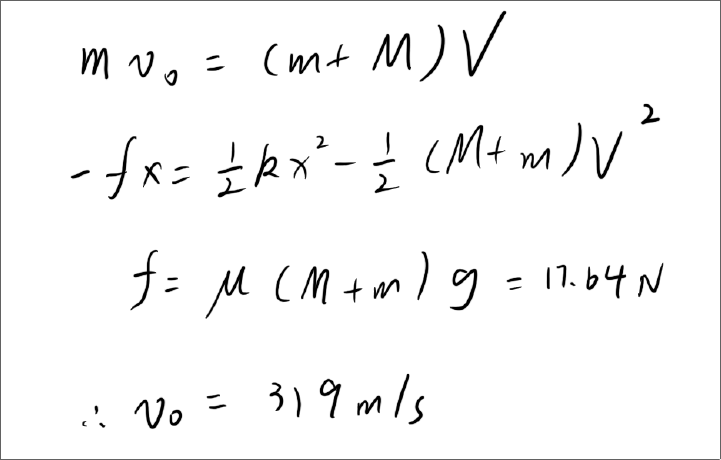 m v₀ = (m + M) V
- f x = ½ k x² - ½ (M + m) V²
f = μ (M + m) g = 17.64 N
∴ v₀ = 319 m/s